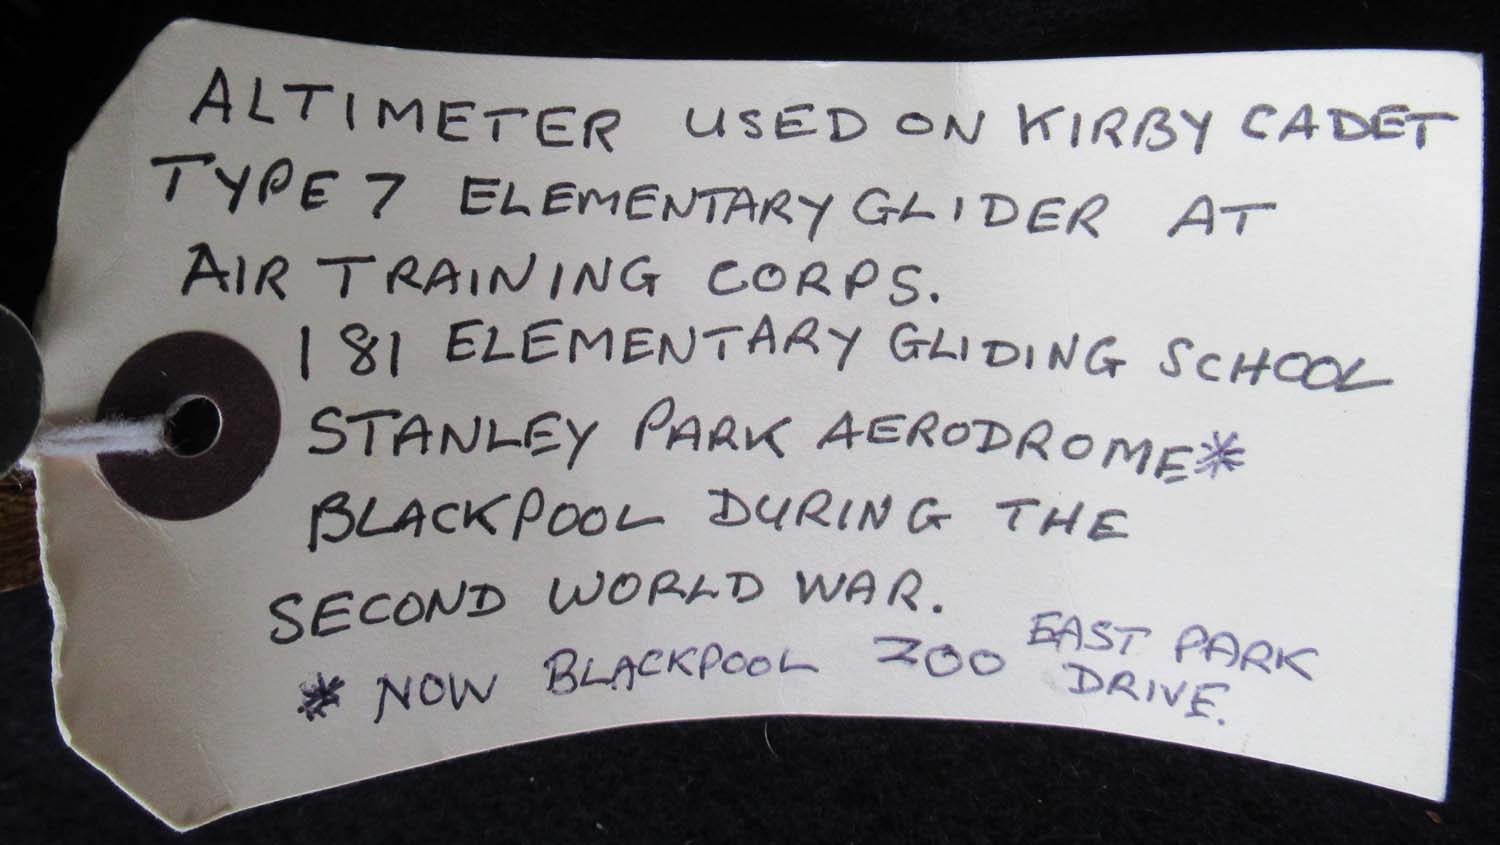 ALTIMETER USED ON KIRBY CADET
TYPE 7 ELEMENTARY GLIDER AT
AIR TRAINING CORPS.
181 ELEMENTARY GLIDING SCHOOL
STANLEY PARK AERODROME*
BLACKPOOL DURING THE
SECOND WORLD WAR.
* NOW BLACKPOOL ZOO EAST PARK
DRIVE.